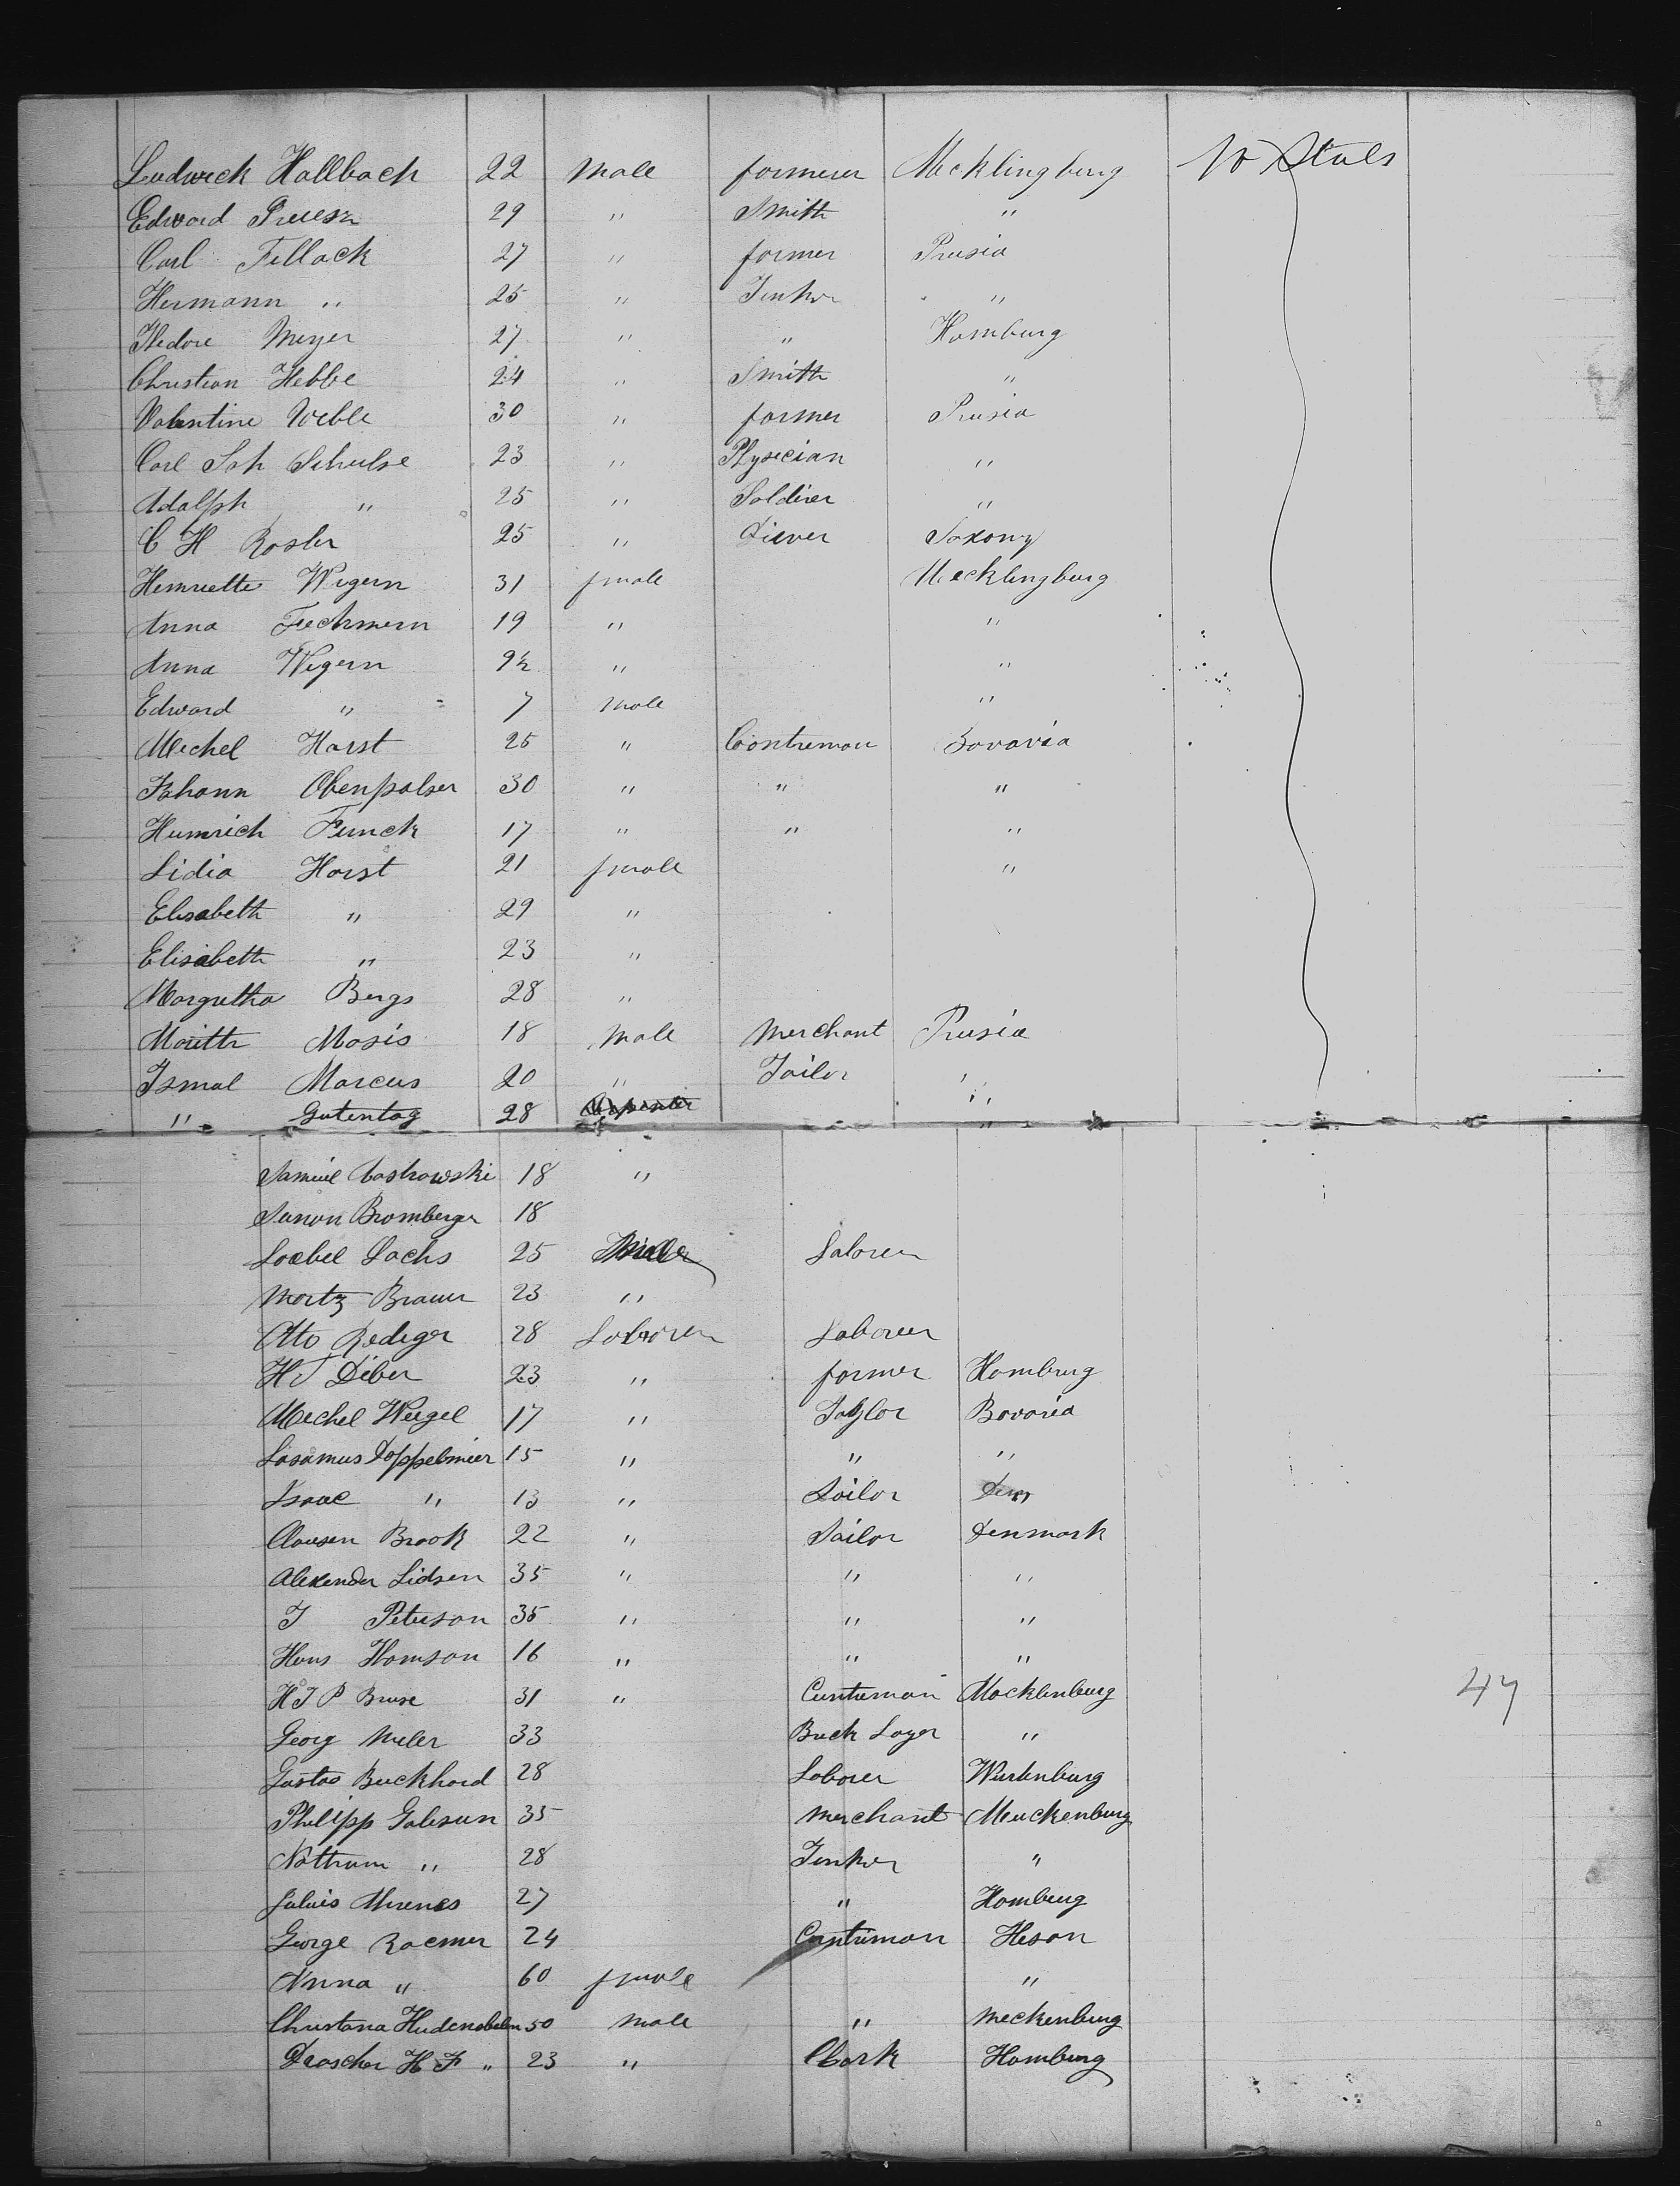 Ludwick Hallbach 22 Male farmerer Mecklingburg No Stats
Edward Preusz 29 " Smith "
Carl Fillack 27 " farmer Prusia
Hermann " 25 " Tinker "
Isedore Meyer 27 " " Hamburg
Christian Hebbe 24 " Smith "
Valentine Weble 30 " farmer Prusia
Carl Joh Schulse 23 " Physecian "
Adalph " 25 " Soldier "
C H Rosler 25 " Diever Saxony
Henriette Wegern 31 female Mecklingburg
Anna Techmern 19 " "
Anna Wegern 9½ " "
Edward " 7 Male "
Mechel Harst 25 " Contreman Bavaria
Johann Obenpalser 30 " " "
Heinrich Funck 17 " " "
Lidia Harst 21 female "
Elisabeth " 29 "
Elisabeth " 23 "
Margretha Bergs 28 "
Moritth Mosis 18 Male Merchant Prusia
Ismal Marcus 20 " Tailor "
" Gutentag 28 Carpenter "
Samuel Castrowski 18 "
Simon Bromberger 18
Loebel Sachs 25 Laborer
Mortz Brauer 23 "
Otto Rediger 28 Laborer Laborer
H J Diber 23 " farmer Hamburg
Mechel Weigel 17 " Taylor Bavaria
Lasamus Doppelmeier 15 " " "
Isaac " 13 " Sailor Den
Clausen Brook 22 " Sailor Denmark
Alexender Lidsen 35 " " "
J Peterson 35 " " "
Hans Hamson 16 " " "
H J P Bruse 31 " Cuntreman Macklenburg 47
Georg Meiler 33 Brick Layer "
Gustav Buckhard 28 Laborer Wurtenburg
Philipp Galesun 35 Merchant Meuckenburg
Nathum " 28 Tinker "
Julius Ahrends 27 " Hamburg
George Raemer 24 Cuntriman Hesan
Anna " 60 female "
Christana Hudenabeln 50 Male " Meckenburg
Drascher H F " 23 " Clark Hamburg